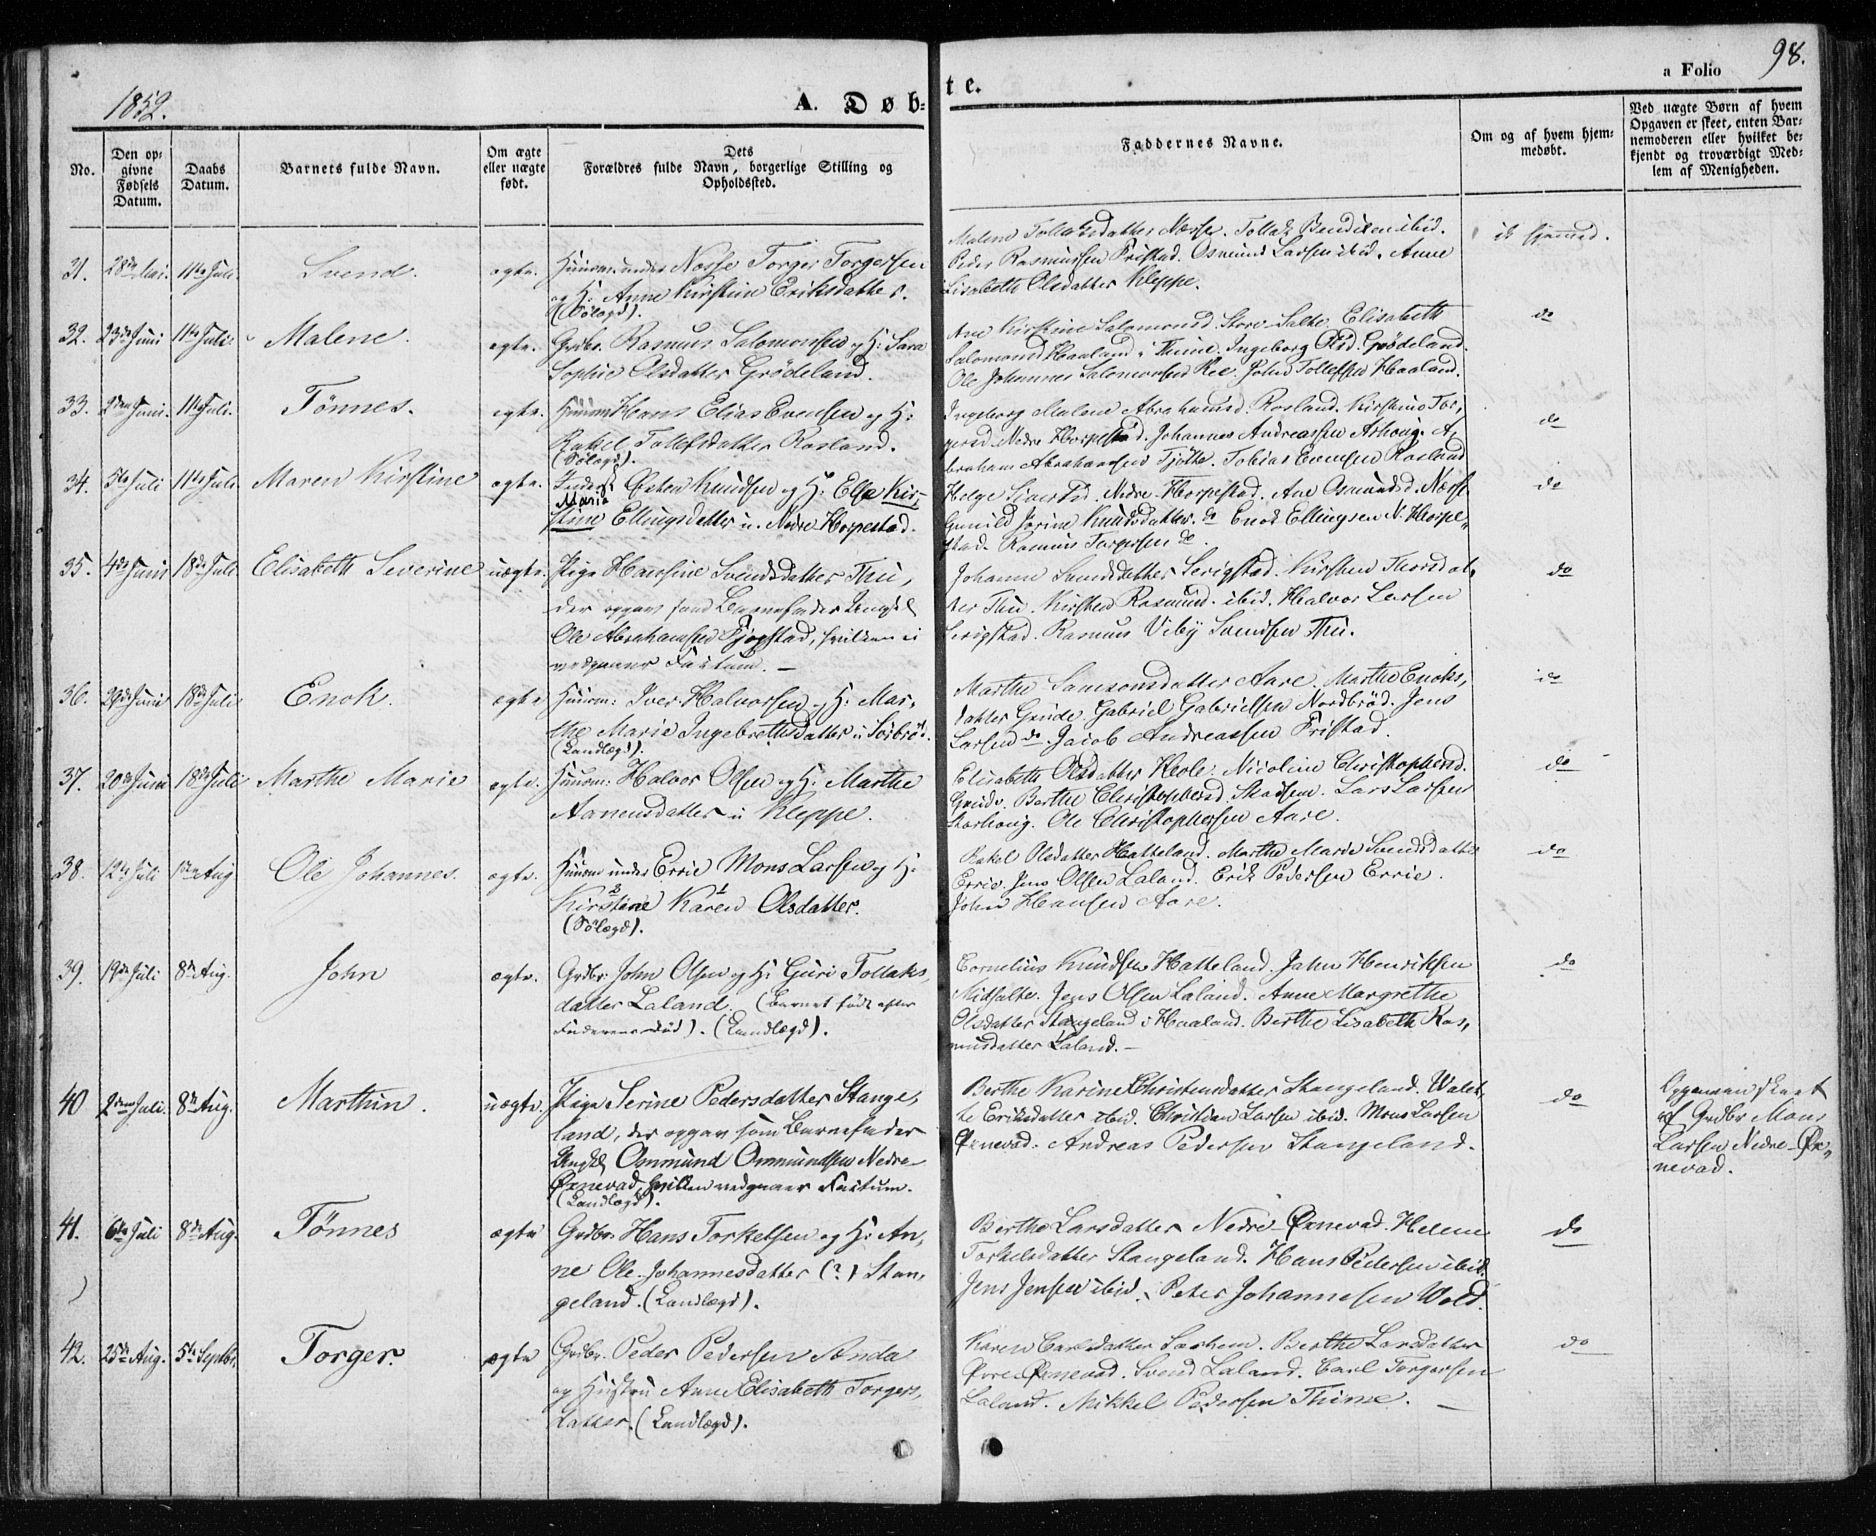 1852.
A. Døb-
te.
a Folio 98.
No.
Den op-
givne
Fødsels
Datum.
Daabs
Datum.
Barnets fulde Navn.
Om ægte
eller uægte
født.
Dets
Forældres fulde Navn, borgerlige Stilling og
Opholdssted.
Faddernes Navne.
Om og af hvem hjem-
medøbt.
Ved uægte Børn af hvem
Opgaven er skeet, enten Bar-
nemoderen eller hvilket be-
kjendt og troværdigt Med-
lem af Menigheden.
31. 11te Juli. Svend. ægte. Huusm. under Næsse Torger Torgersen
og H: Anne Kirstine Eriksdatter.
(Sølægd).
Malene Tollaksdatter Næsse. Tollak Bendiksen ibid.
Peder Rasmussen Fristad. Osmund Larsen ibid. Anne
Lisabeth Olsdatter Kleppe.
32. 23de Juni 11te Juli. Malene. ægte. Grdbr. Rasmus Salomonsen og H: Sara
Sophie Olsdatter Grödeland.
Ane Kirstine Salomonsd. Store-Salte. Elisabeth
Salomonsd. Haaland i Thime. Ingeborg Olsd. Grödeland.
Ole Johannes Salomonsen Ree. John Tollefsen Haaland.
do
33. 2den Juni. 11te Juli. Tönnes. ægte. Huusm. Hans Elias Evensen og H:
Rakel Tollefsdatter Rosland.
(Sølægd).
Ingeborg Malene Abrahamsd. Rosland. Kirstine Tor-
gersd. Nedre Horpestad. Johannes Andreassen Ashoug. A-
braham Abrahamsen Tjötte. Tobias Evensen Rosland
do
34. 5te Juli 11te Juli. Maren Kirstine ægte. Inderst Esten Knudsen og H: Elsa Kir-
Marie
stine Ellingsdatter u. Nedre Horpestad.
Helge Sivertsd. Nedre-Horpestad. Ane Osmundsd. Næsse
Gunild Jorine Knudsdatter. do Enok Ellingsen N. Horpe-
stad. Rasmus Torgersen do.
do
35. 4de Juni 18de Juli Elisabeth Severine uægte. Pige Hansine Svendsdatter Thu,
der opgav som Barnefader Ungkl
Ole Abrahamsen Tjøgstad, hvilken ei
vedgaaer Factum. —
Johanne Svendsdatter Serigstad. Kirsten Thorsdat-
ter Thu. Kirsten Rasmusd. ibid. Halvor Larsen
Serigstad. Rasmus Viby Svendsen Thu.
do
36. 29de Juni 18de Juli Enok. ægte Huusm: Iver Halvorsen og H: Mar-
the Marie Ingebretsdatter u. Sörbrød.
(Landlægd).
Marthe Samsonsdatter Aare. Marthe Enoks-
datter Grude. Gabriel Gabrielsen Nordbröd. Jens
Larsen do. Jacob Andreassen Fristad.
do
37. 20de Juni 18de Juli Marthe Marie ægte. Huusm: Halvor Olsen og H: Marthe
Aanensdatter u Kleppe.
Elisabeth Olsdatter Hole. Nicoline Christophersd.
Grude. Berthe Christophersd. Stadsem. Lars Larsen
Storhoug. Ole Christophersen Aare.
do
38. 12te Juli 1ste Aug Ole Johannes. ægte. Huusm under Errie Mons Larsen og H:
Kirstine Karen Olsdatter.
(Sølægd).
Rakel Olsdatter Hatteland. Marthe Marie Svendsdatter
Errie. Jens Olsen Laland. Erik Pedersen Errie.
John Hansen Aare.
do
39. 19de Juli 8de Aug. John ægte. Grdbr: John Olsen og H: Guri Tollaks-
datter Laland. (Barnet født efter
Faderens Död). (Landlægd).
Cornelius Knudsen Hatteland. John Henriksen
Midsalte. Jens Olsen Laland. Anne Margrethe
Olsdatter Stangeland i Haaland. Berthe Lisabeth Ras-
musdatter Laland. —
do
40 2den Juli. 8de Aug. Marthin. uægte. Pige Serine Pedersdatter Stange-
land, der opgav som Barnefader
Ungkl Osmund Osmundsen Nedre-
Øxnevad, hvilken vedgaaer Factum.
(Landlægd).
Berthe Karine Christensdatter Stangeland.
Eriksdatter ibid. Christian Larsen ibid. Mons Larsen
Øxnevad. Andreas Pedersen Stangeland.
do
Opgaven skeet
af Grdbr Mons
Larsen Nedre-Øx-
nevad.
41. 6te Juli 8de Aug. Tönnes ægte Grdbr: Hans Torkelsen og H: An-
ne Ole-Johannesdatter (?) Stan-
geland. (Landlægd).
Berthe Larsdatter Nedre-Øxnevad. Helene
Torkelsdatter Stangeland. Hans Pedersen ibid.
Jens Jensen ibid. Peter Johannesen Wold.
do
42. 25de Aug. 5te Septbr. Torger. ægte Grdbr. Peder Pedersen Sønda
og Hustru Anne Elisabeth Torgers-
datter. (Landlægd).
Karen Carlsdatter Berthe Larsdatter
Øvre-Øxnevad. Svend Laland. Carl Torgersen
Laland. Mikkel Pedersen Thime. —
do